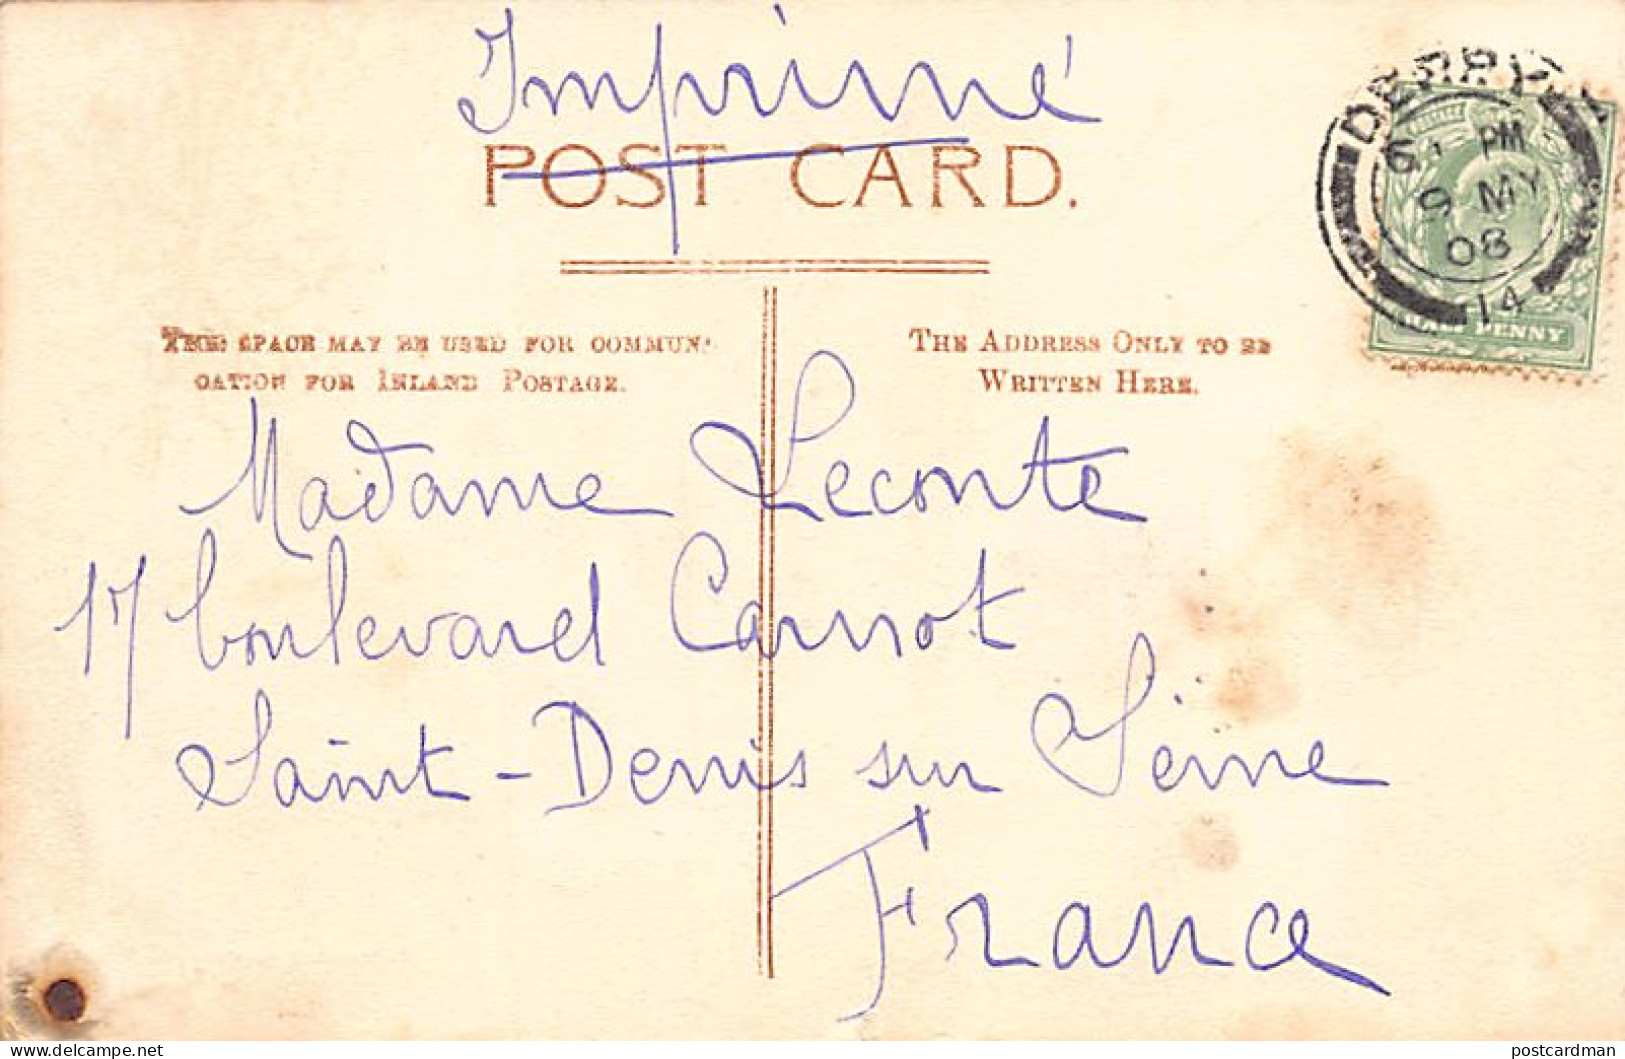 Imprimé
POST CARD.
DERBY
PM
9 MY
08
14
HALF PENNY
THE SPACE MAY BE USED FOR COMMUNI-
CATION FOR INLAND POSTAGE.
THE ADDRESS ONLY TO BE
WRITTEN HERE.
Madame Leconte
17 boulevard Carnot
Saint-Denis sur Seine
France
delcampe.net
postcardman